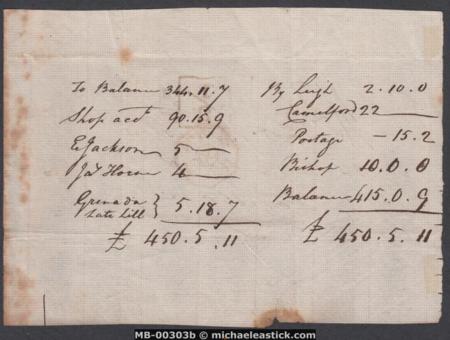 To Balance 344.11.7
Shop acct 90.15.9
E Jackson 5 —
Jas Horne 4 —
Grenada
late bill } 5.18.7
£ 450.5.11
By Leigh 2.10.0
Camelford 22 —
Postage – 15.2
Bishop 10.0.0
Balance 415.0.9
£ 450.5.11
MB-00303b © michaeleastick.com